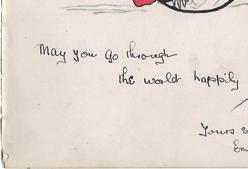 May you go through
the world happily
Yours